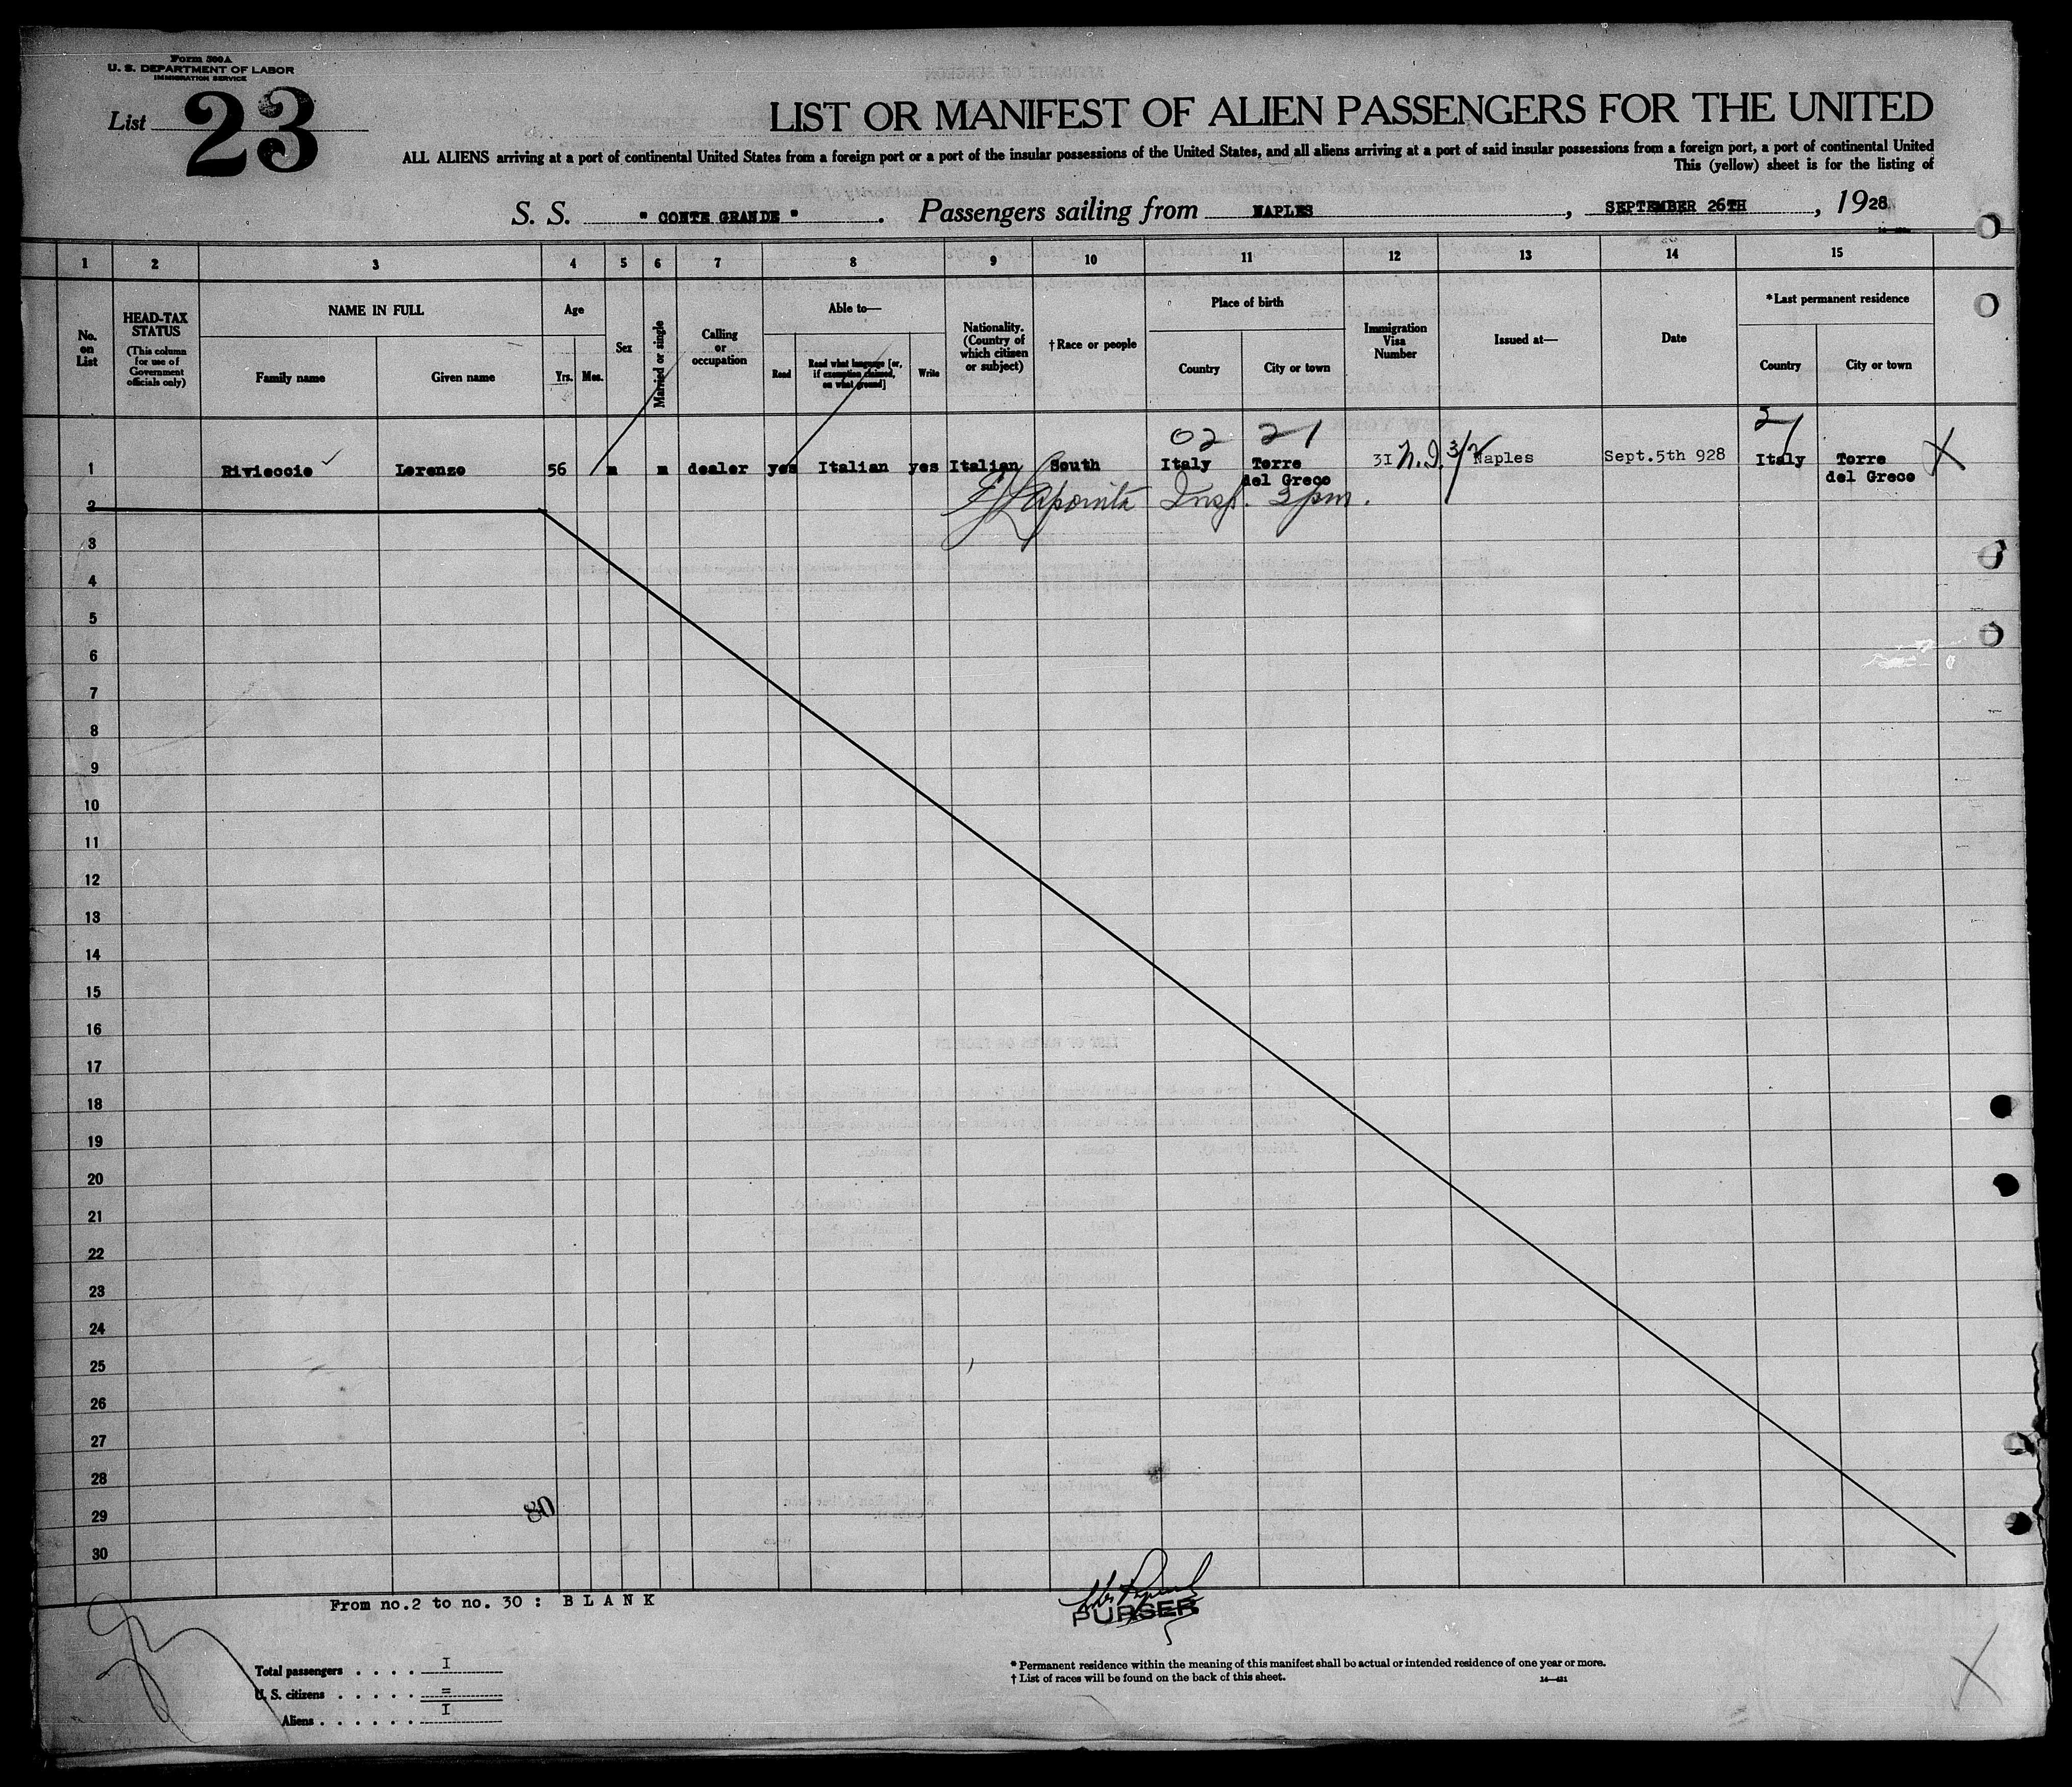 Form 500A
U. S. DEPARTMENT OF LABOR
IMMIGRATION SERVICE
List 23
LIST OR MANIFEST OF ALIEN PASSENGERS FOR THE UNITED
ALL ALIENS arriving at a port of continental United States from a foreign port or a port of the insular possessions of the United States, and all aliens arriving at a port of said insular possessions from a foreign port, a port of continental United
This (yellow) sheet is for the listing of
S. S. " CONTE GRANDE ". Passengers sailing from NAPLES, SEPTEMBER 26TH, 1928
1 2 3 4 5 6 7 8 9 10 11 12 13 14 15
No. on List
HEAD-TAX STATUS
(This column for use of Government officials only)
NAME IN FULL
Family name
Given name
Age
Yrs. Mos.
Sex
Married or single
Calling or occupation
Able to—
Read
Read what language [or, if exemption claimed, on what ground]
Write
Nationality. (Country of which citizen or subject)
†Race or people
Place of birth
Country
City or town
Immigration Visa Number
Issued at—
Date
*Last permanent residence
Country
City or town
02 21
1 Rivieccio Lorenzo 56 m m dealer yes Italian yes Italian South Italy Torre del Greco 31 N.I. 3/2 Naples Sept.5th 928 Italy Torre del Greco X
Insp. 3 pm.
2
3
4
5
6
7
8
9
10
11
12
13
14
15
16
17
18
19
20
21
22
23
24
25
26
27
28
29
30
80
From no.2 to no. 30 : B L A N K
PURSER
Total passengers . . . . I
U. S. citizens . . . . . =
Aliens . . . . . . I
* Permanent residence within the meaning of this manifest shall be actual or intended residence of one year or more.
† List of races will be found on the back of this sheet.
X